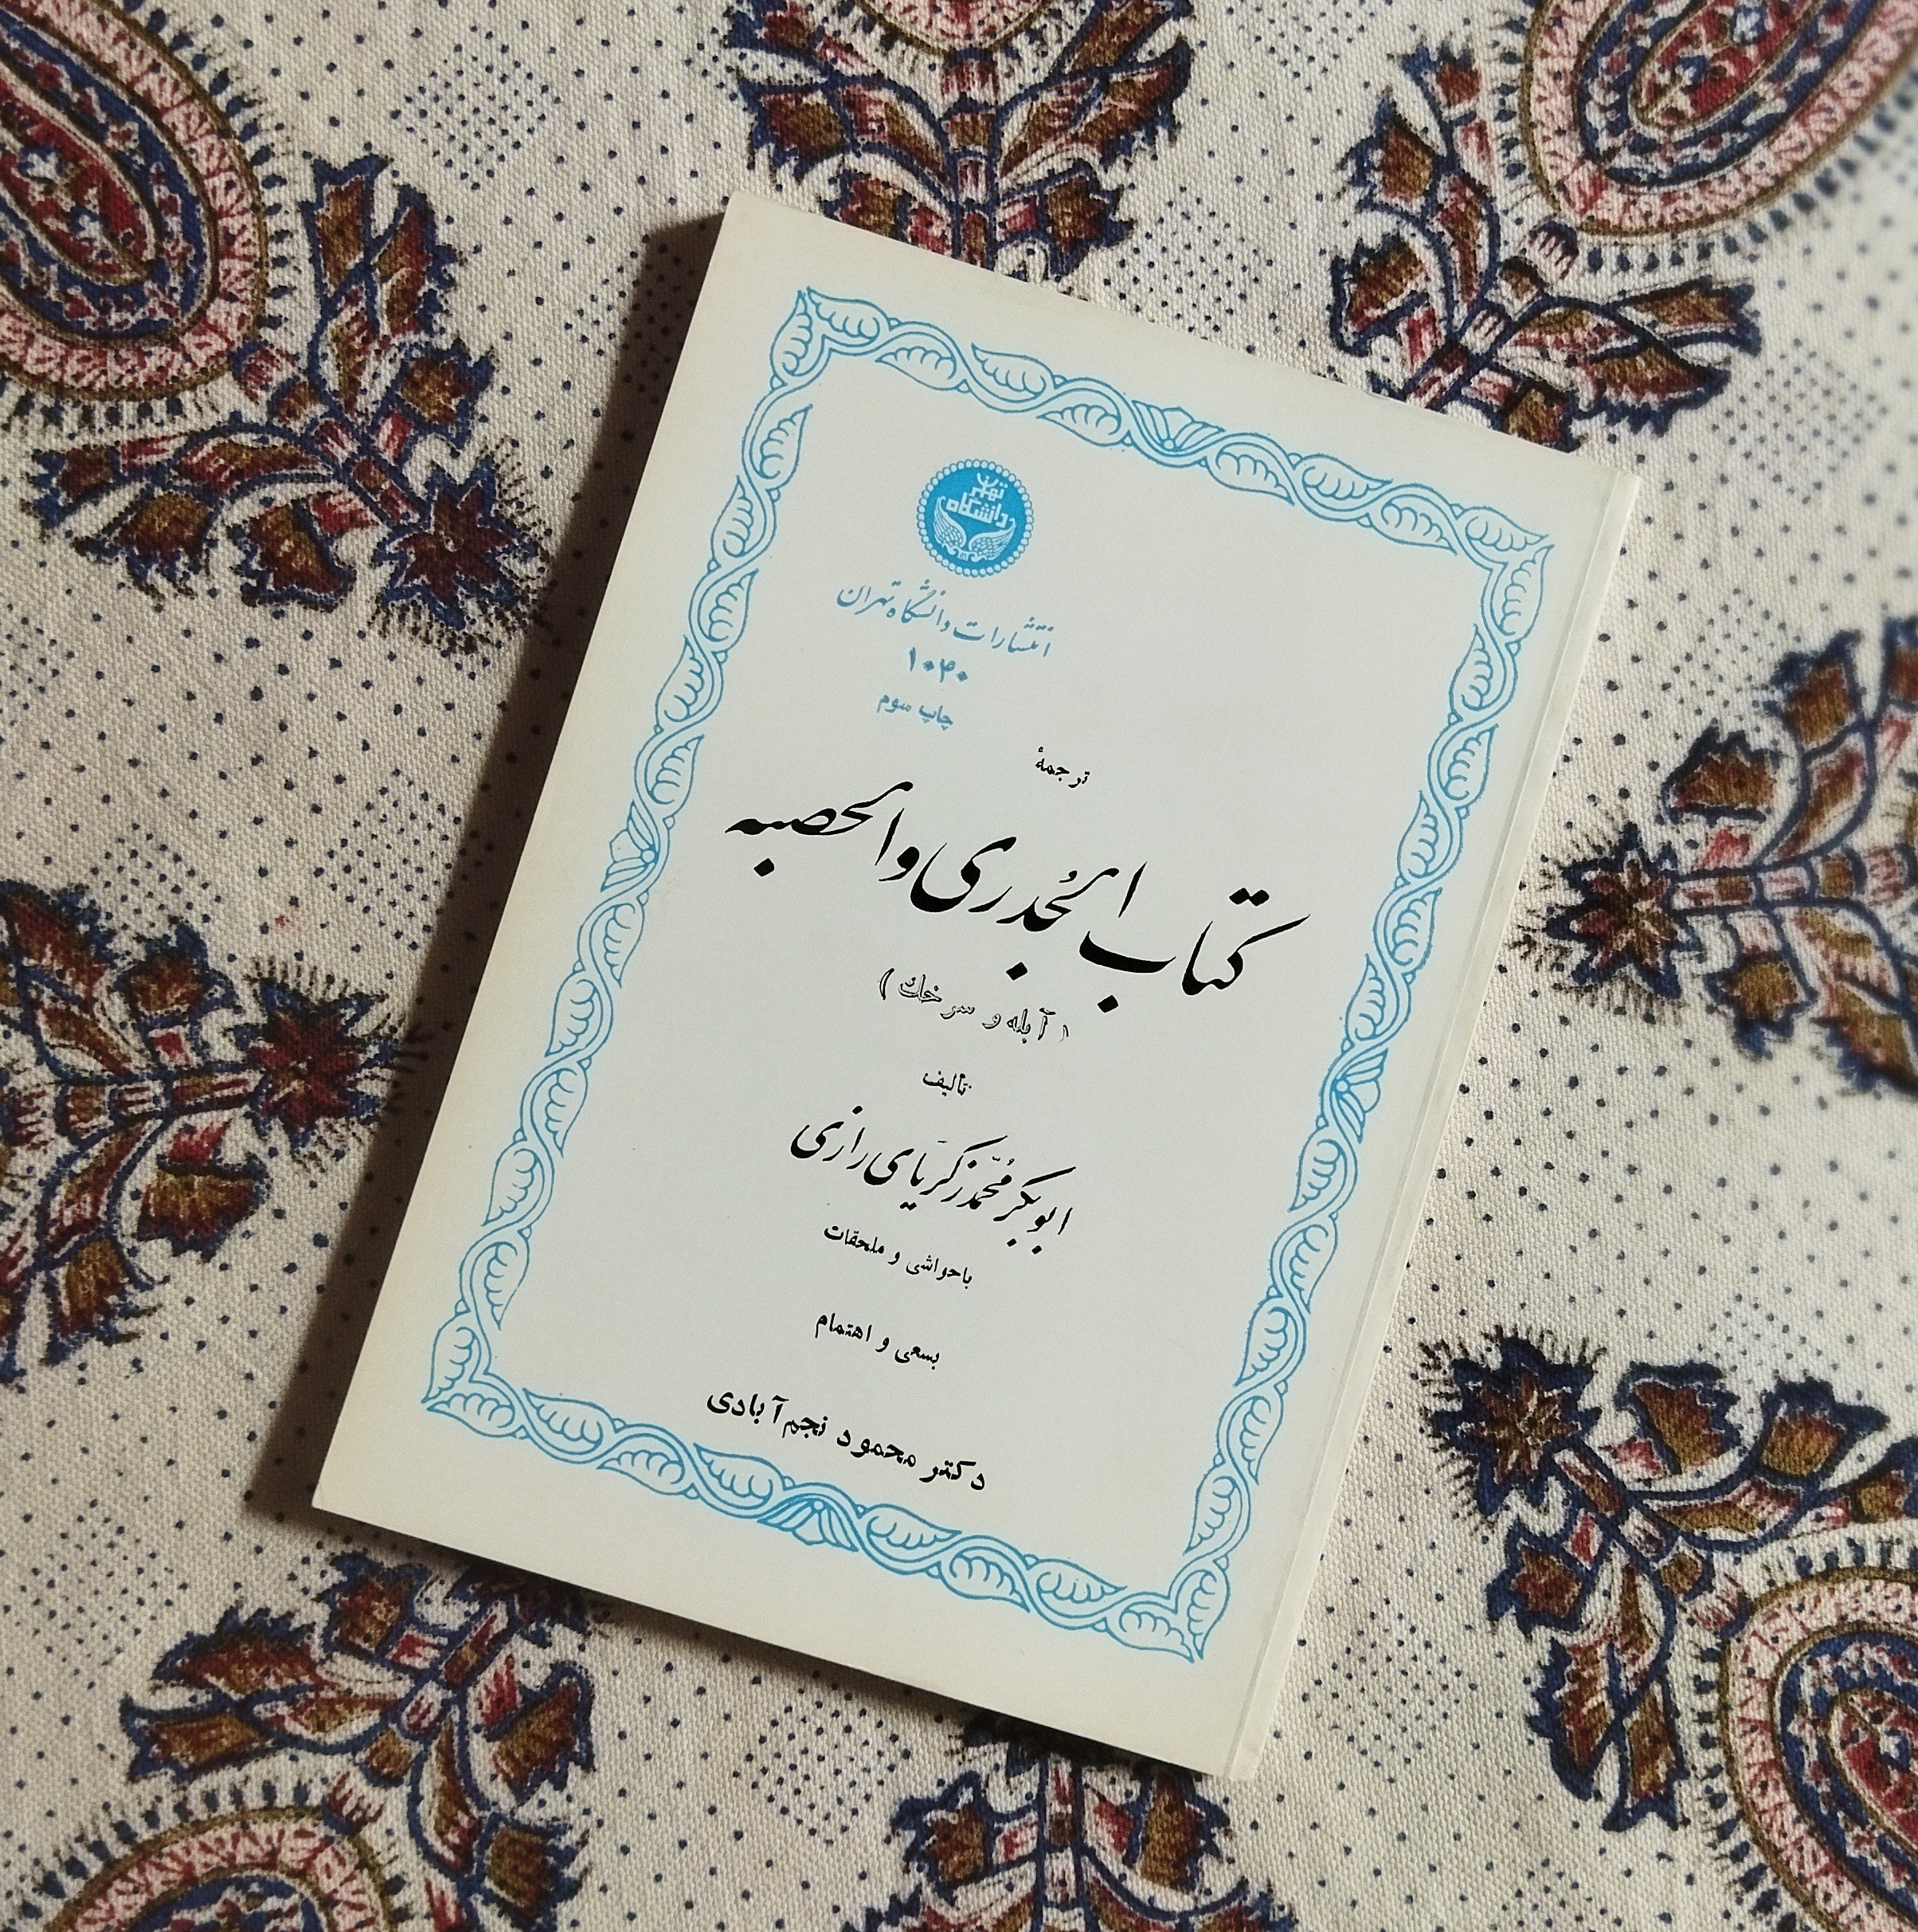 دانشگاه
تهران
انتشارات دانشگاه تهران
۱۰۴۰
چاپ سوم
ترجمهٔ
کتاب الجُدری والحصبه
(آبله و سرخک)
تألیف
ابوبکر مُحمّد زکَریّای رازی
با حواشی و ملحقات
بسعی و اهتمام
دکتر محمود نجم‌آبادی